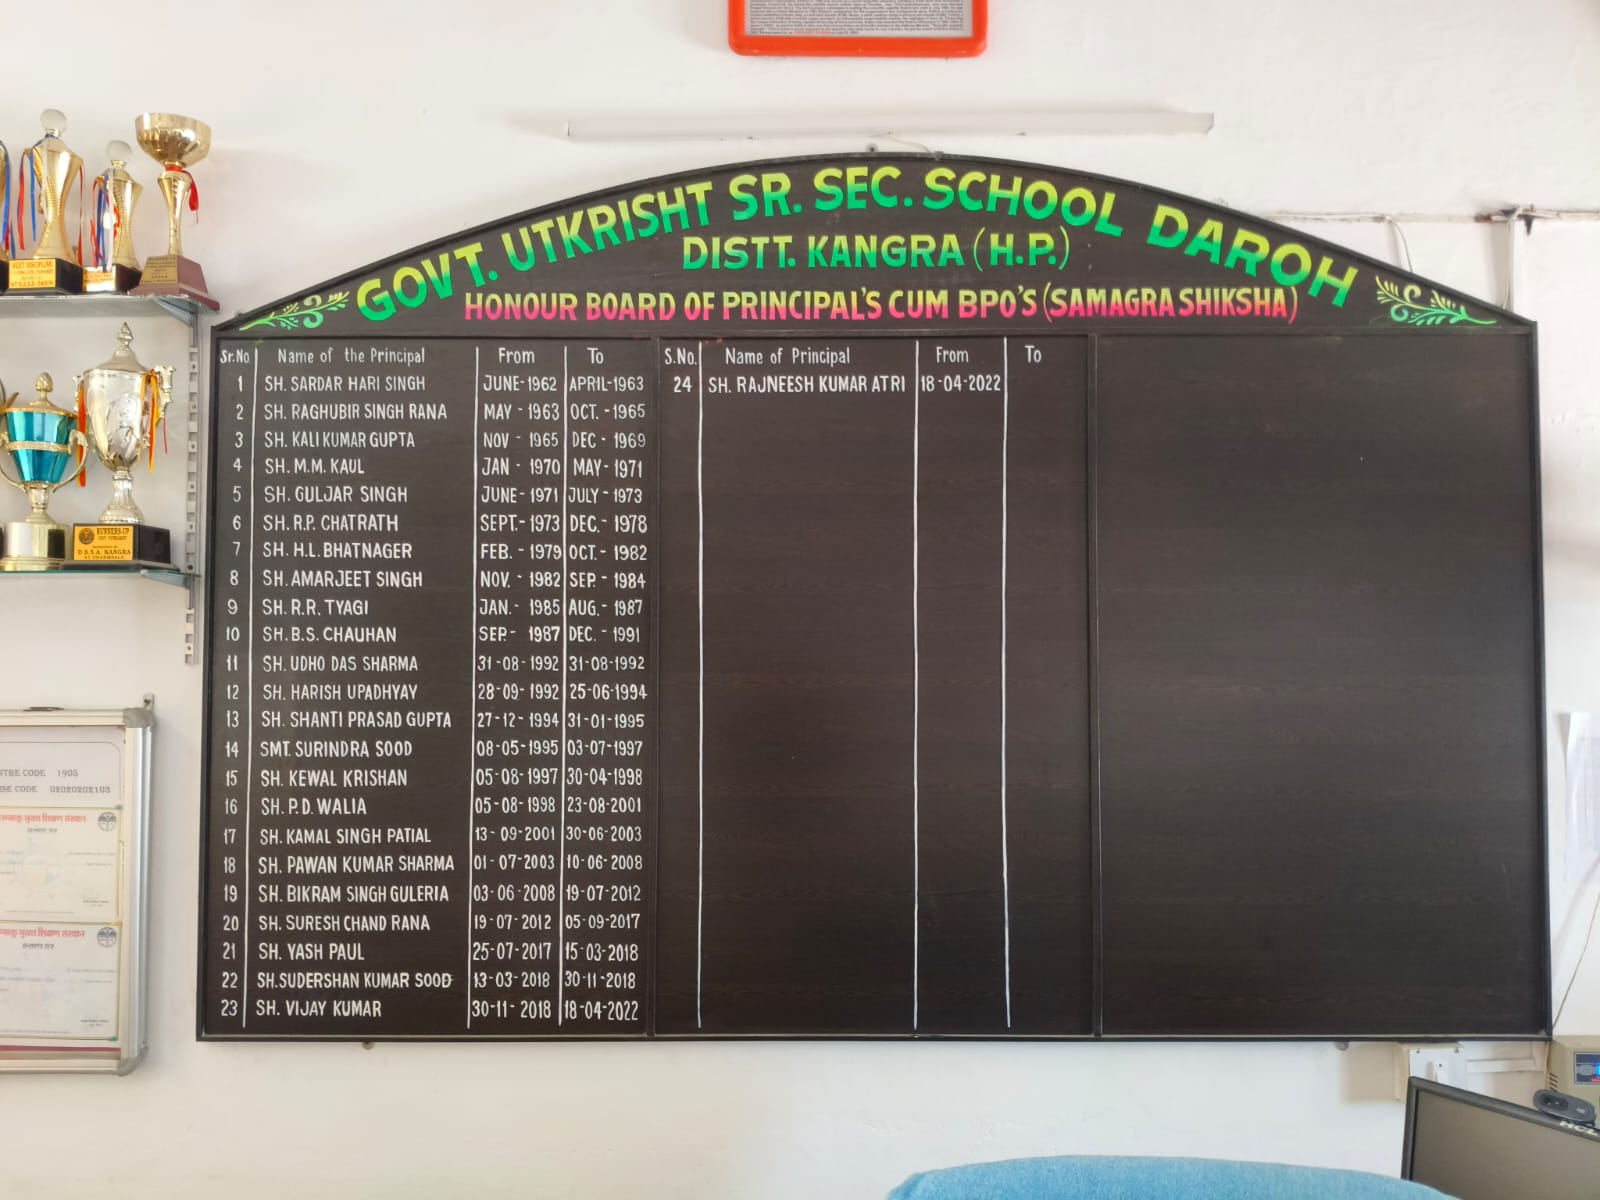 GOVT. UTKRISHT SR. SEC. SCHOOL DAROH
DISTT. KANGRA (H.P.)
HONOUR BOARD OF PRINCIPAL'S CUM BPO'S (SAMAGRA SHIKSHA)
Sr.No Name of the Principal From To
1 SH. SARDAR HARI SINGH JUNE-1962 APRIL-1963
2 SH. RAGHUBIR SINGH RANA MAY - 1963 OCT. - 1965
3 SH. KALI KUMAR GUPTA NOV - 1965 DEC - 1969
4 SH. M.M. KAUL JAN - 1970 MAY - 1971
5 SH. GULJAR SINGH JUNE - 1971 JULY - 1973
6 SH. R.P. CHATRATH SEPT. - 1973 DEC. - 1978
7 SH. H.L. BHATNAGER FEB. - 1979 OCT. - 1982
8 SH. AMARJEET SINGH NOV. - 1982 SEP. - 1984
9 SH. R.R. TYAGI JAN. - 1985 AUG. - 1987
10 SH. B.S. CHAUHAN SEP. - 1987 DEC. - 1991
11 SH. UDHO DAS SHARMA 31-08-1992 31-08-1992
12 SH. HARISH UPADHYAY 28-09-1992 25-06-1994
13 SH. SHANTI PRASAD GUPTA 27-12-1994 31-01-1995
14 SMT. SURINDRA SOOD 08-05-1995 03-07-1997
15 SH. KEWAL KRISHAN 05-08-1997 30-04-1998
16 SH. P.D. WALIA 05-08-1998 23-08-2001
17 SH. KAMAL SINGH PATIAL 13-09-2001 30-06-2003
18 SH. PAWAN KUMAR SHARMA 01-07-2003 10-06-2008
19 SH. BIKRAM SINGH GULERIA 03-06-2008 19-07-2012
20 SH. SURESH CHAND RANA 19-07-2012 05-09-2017
21 SH. YASH PAUL 25-07-2017 15-03-2018
22 SH. SUDERSHAN KUMAR SOOD 13-03-2018 30-11-2018
23 SH. VIJAY KUMAR 30-11-2018 18-04-2022
S.No. Name of Principal From To
24 SH. RAJNEESH KUMAR ATRI 18-04-2022
BEST DISCIPLINE
RUNNERS-UP
D.S.S.A. KANGRA
CODE 1905
CODE 02020202103
मुक्त शिक्षा संस्थान
मुक्त शिक्षा संस्थान
HCL